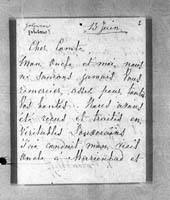 13 Juin
Cher Comte
Mon Oncle et moi, nous
ne saurons jamais vous
remercier assez pour toutes
vos bontés. Nous avons
été reçus et traités en
véritables Souverains
J'ai conduit mon vieil
Oncle à Marienbad et